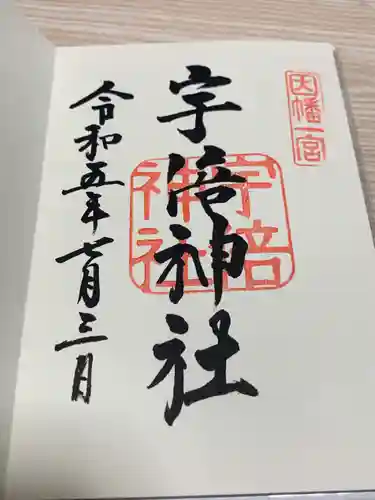 因幡一宮
宇倍神社
宇倍神社
令和五年七月三日